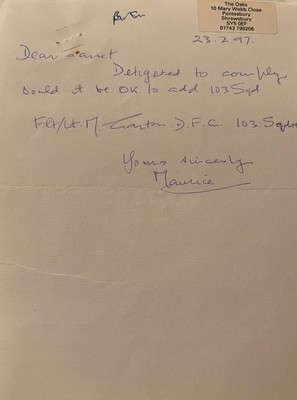 The Oaks
10 Mary Webb Close
Pontesbury
Shrewsbury
SY5 0EF
01743 790206
23.2.97.
Dear
Delighted to comply,
would it be OK to add 103 Sqd.
Flt/Lt. M. D.F.C. 103 Sqdn
Yours sincerely
Maurice